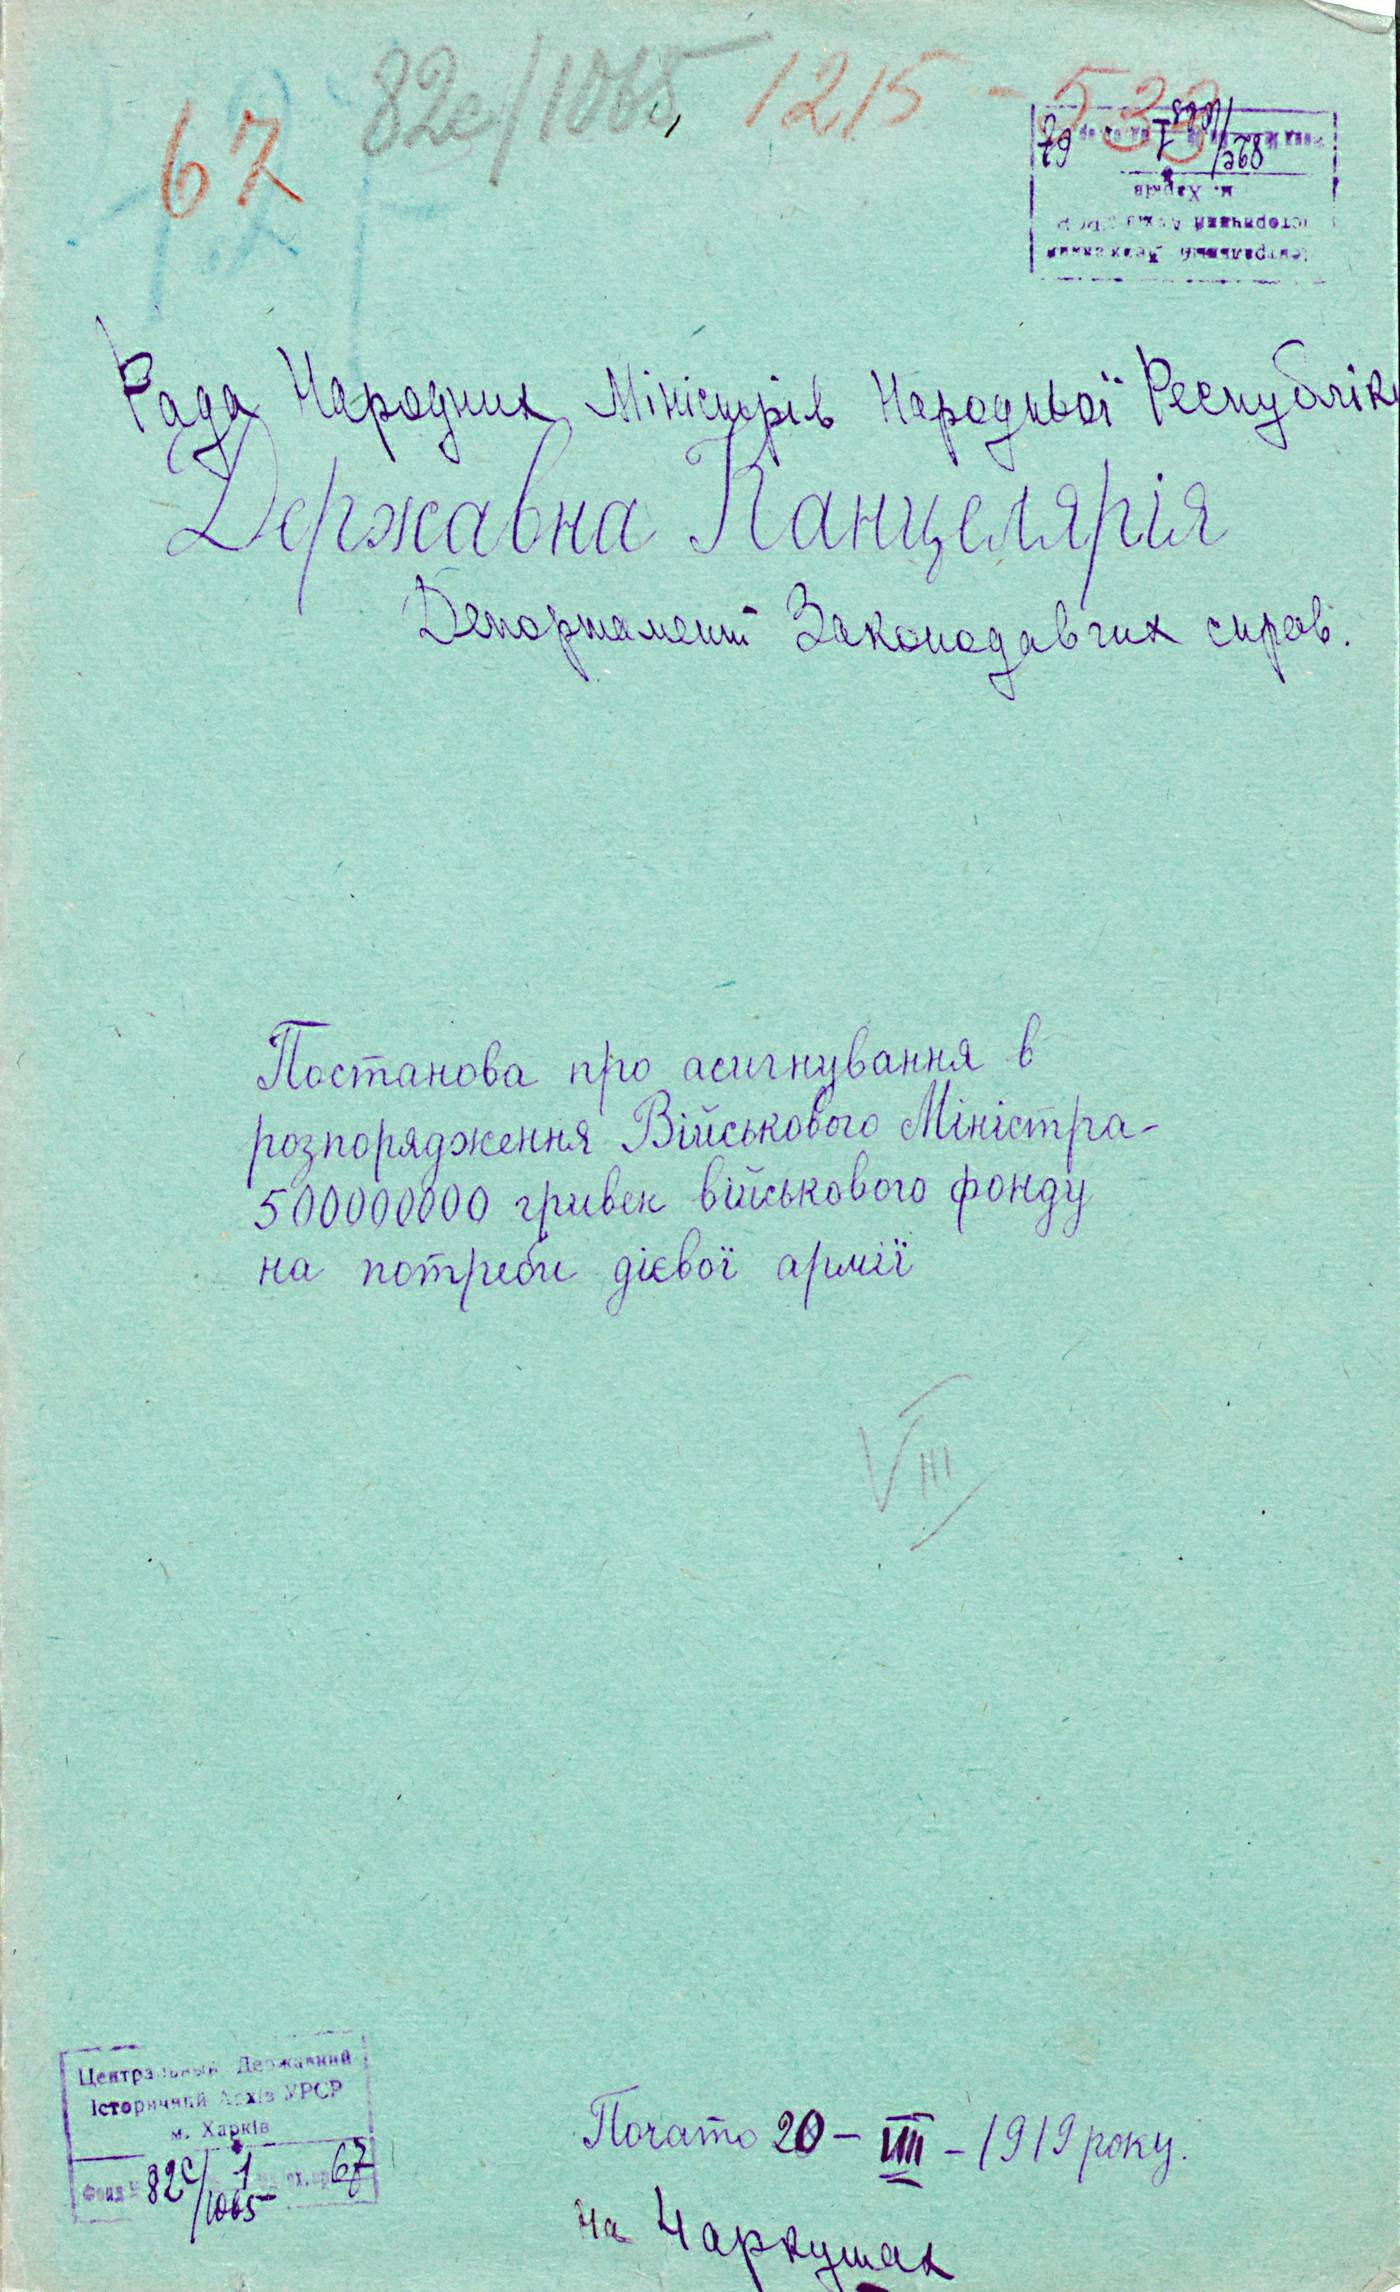 82с/1065, 1215 - 533
67
Центральный Державний
Історичний Архів УРСР
м. Харків
Фонд № 82с/1065 1 од. зб. 67
Рада Народних Міністрів Народньої Республіки
Державна Канцелярія
Департамент Законодавчих справ.
Постанова про асигнування в
розпорядження Військового Міністра-
500000000 гривен військового фонду
на потреби дієвої армії
VIII
Центральный Державний
Історичний Архів УРСР
м. Харків
Фонд № 82с/1065 1 67
Почато 20 - VIII - 1919 року.
на 4 аркушах